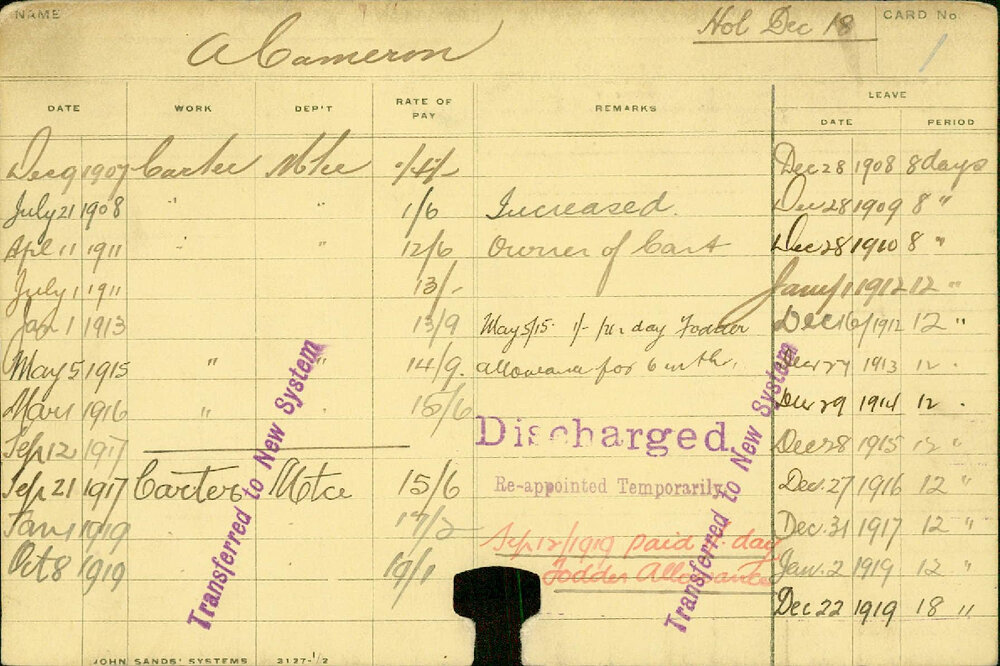 NAME Hol Dec 18 CARD No 1
A Cameron
DATE WORK DEP'T RATE OF PAY REMARKS LEAVE
DATE PERIOD
Dec 9 1907 Carter Mtce Dec 28 1908 8 days
July 21 1908 " " 1/6 Increased. Dec 28 1909 8 "
Apl 11 1911 " " 12/6 Owner of Cart Dec 28 1910 8 "
July 1 1911 13/- Jany 1 1912 12 "
Jan 1 1913 13/9 May 5/15. 1/- per day Fodder Dec 16/1912 12 "
May 5 1915 " " 14/9. allowance for 6 mths. Dec 27 1913 12 "
Mar 1 1916 " " 15/6 Dec 29 1914 12 "
Sep 12 1917 Discharged. Dec 28 1915 12 "
Sep 21 1917 Carter Mtce 15/6 Re-appointed Temporarily Dec. 27 1916 12 "
Jan 1 1919 17/2 Sep 12/1919 paid day Dec. 31 1917 12 "
Oct 8 1919 19/1 Fodder Allowance Jan. 2 1919 12 "
Dec 22 1919 18 "
Transferred to New System
Transferred to New System
JOHN SANDS' SYSTEMS 3127-1/2